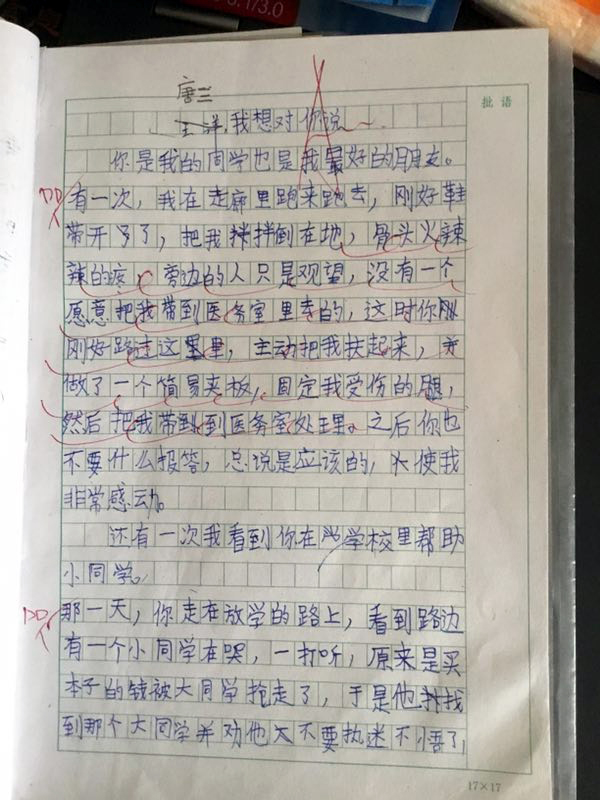 唐三
我想对你说
批语
你是我的同学也是我最好的朋友。
有一次,我在走廊里跑来跑去,刚好鞋
带开了,把我拌倒在地,骨头火辣
辣的疼,旁边的人只是观望,没有一个
愿意把我带到医务室里去的,这时你
刚好路过这里,主动把我扶起来,
做了一个简易夹板,固定我受伤的腿,
然后把我带到医务室处理。之后你也
不要什么报答,总说是应该的,使我
非常感动。
还有一次我看到你在学校里帮助
小同学。
那一天,你走在放学的路上,看到路边
有一个小同学在哭,一打听,原来是买
本子的钱被大同学抢走了,于是他找
到那个大同学并劝他不要执迷不悟了,
17×17